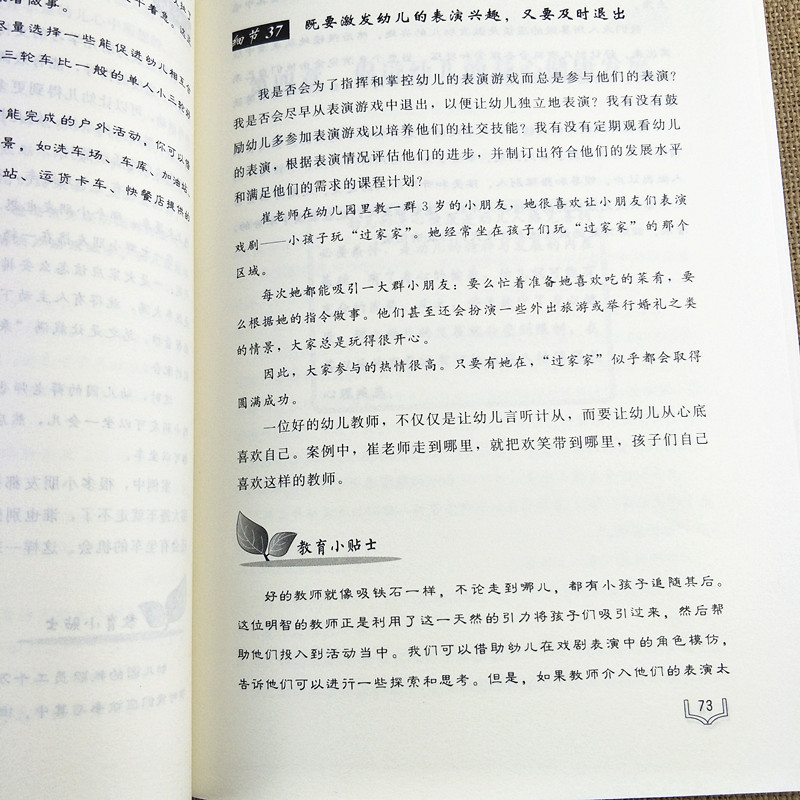 做事。
尽量选择一些能促进幼儿相互合
三轮车比一般的单人小三轮的
能完成的户外活动，你可以借
景，如洗车场、车库、加油站、
站、运货卡车、快餐店提供的
细节 37
既要激发幼儿的表演兴趣，又要及时退出
我是否会为了指挥和掌控幼儿的表演游戏而总是参与他们的表演？
我是否会尽早从表演游戏中退出，以便让幼儿独立地表演？我有没有鼓
励幼儿多参加表演游戏以培养他们的社交技能？我有没有定期观看幼儿
的表演，根据表演情况评估他们的进步，并制订出符合他们的发展水平
和满足他们的需求的课程计划？
崔老师在幼儿园里教一群 3 岁的小朋友，她很喜欢让小朋友们表演
戏剧——小孩子玩“过家家”。她经常坐在孩子们玩“过家家”的那个
区域。
每次她都能吸引一大群小朋友：要么忙着准备她喜欢吃的菜肴，要
么根据她的指令做事。他们甚至还会扮演一些外出旅游或举行婚礼之类
的情景，大家总是玩得很开心。
因此，大家参与的热情很高。只要有她在，“过家家”似乎都会取得
圆满成功。
一位好的幼儿教师，不仅仅是让幼儿言听计从，而要让幼儿从心底
喜欢自己。案例中，崔老师走到哪里，就把欢笑带到哪里，孩子们自己
喜欢这样的教师。
教育小贴士
好的教师就像吸铁石一样，不论走到哪儿，都有小孩子追随其后。
这位明智的教师正是利用了这一天然的引力将孩子们吸引过来，然后帮
助他们投入到活动当中。我们可以借助幼儿在戏剧表演中的角色模仿，
告诉他们可以进行一些探索和思考。但是，如果教师介入他们的表演太
73